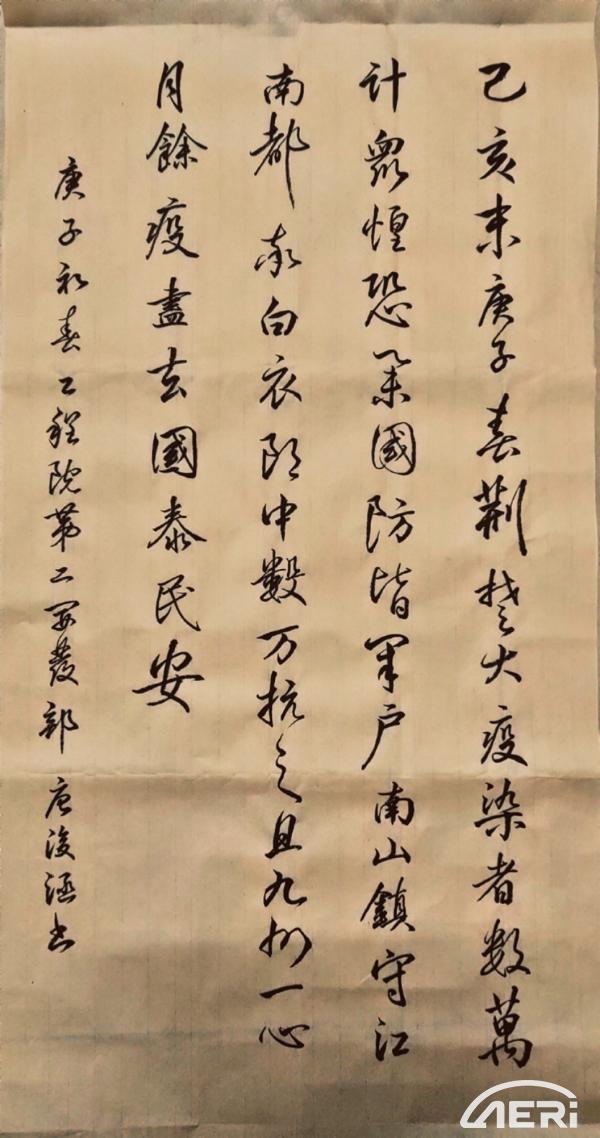 己亥末庚子春荆楚大疫染者数萬
计眾惶恐举國防皆闭户南山鎮守江
南都率白衣郎中數万抗之且九州一心
月餘疫盡去國泰民安
庚子初春工程院第二开發部 唐浚书
AERi